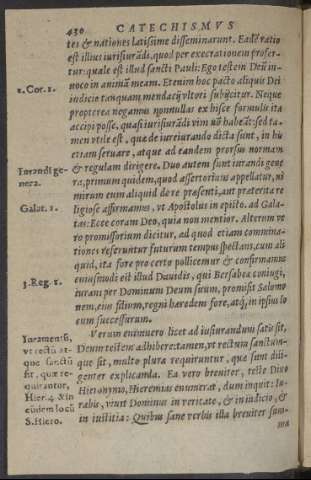 430 CATECHISMVS
tes & nationes latissime disseminarunt. Eadē ratio
est illius iurisiurādi, quod per execrationem profer-
tur: quale est illud sancti Pauli: Ego testem Deū in-
2. Cor. 1.
uoco in animā meam. Etenim hoc pacto aliquis Dei
iudicio tanquam mendacij vltori subijcitur. Neque
propterea negamus nonnullas ex hisce formulis ita
accipi posse, quasi iurisiurādi vim nō habeāt: sed ta-
men vtile est, quæ de iureiurando dicta sunt, in his
etiam seruare, atque ad eandem prorsus normam
Iurandi ge-
nera.
& regulam dirigere. Duo autem sunt iurandi gene
ra, primum quidem, quod assertorium appellatur, ni
mirum cum aliquid de re præsenti, aut præterita re
Galat. 1.
ligiose affirmamus, vt Apostolus in episto. ad Gala-
tas: Ecce coram Deo, quia non mentior. Alterum ve
ro promissorium dicitur, ad quod etiam commina-
tiones referuntur futurum tempus spectans, cum ali
quid, ita fore pro certo pollicemur & confirmamus
3. Reg. 1.
eiusmodi est illud Dauidis, qui Bersabea coniugi,
iurans per Dominum Deum suum, promisit Salomo
nem, eius filium, regni hæredem fore, atq; in ipsius lo
cum successurum.
Iuramento,
vt rectū at-
que sanctū
sit, quæ re-
quirantur,
Hier. 4. & in
eūdem locū
S. Hiero.
Verum enimuero licet ad iusiurandum satis sit,
Deum testem adhibere: tamen, vt rectum sanctum-
que sit, multo plura requiruntur, quæ sunt dili-
genter explicanda. Ea vero breuiter, teste Diuo
Hieronymo, Hieremias enumerat, dum inquit: Iu-
rabis, viuit Dominus in veritate, & in iudicio, &
in iustitia: Quibus sane verbis illa breuiter sum-
ma